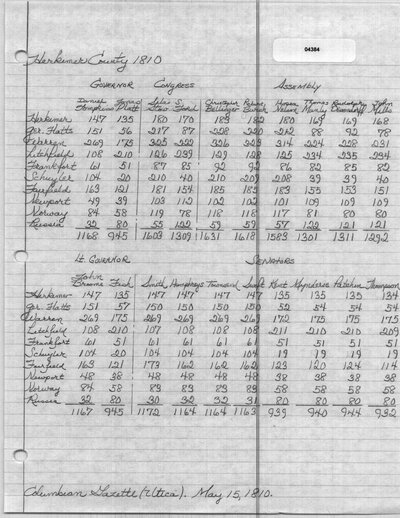 04384
Herkimer County 1810
GOVERNOR CONGRESS ASSEMBLY
Daniel Jonas Silas S. Thomas John
Tompkins Platt Stow Ford Bellinger
Herkimer 147 135 180 170 183 182 180 169 169 168
Ger. Flatts 151 56 217 87 228 220 212 88 92 78
Warren 269 175 325 222 326 223 314 224 228 231
Litchfield 108 210 126 239 129 128 125 234 235 234
Frankfort 61 51 87 85 92 92 86 82 85 82
Schuyler 104 20 210 40 210 209 208 39 39 40
Fairfield 163 121 181 154 185 185 183 155 153 151
Newport 49 39 103 112 102 102 101 109 109 109
Norway 84 58 119 78 118 118 117 81 80 80
Russia 32 80 55 122 59 59 57 122 121 121
1168 945 1603 1309 1631 1618 1583 1301 1311 1292
Lt. GOVERNOR SENATORS
John
Broome Fish Smith Humphreys Townsend Swift Kent Mynderse Patchin Thompson
Herkimer 147 135 147 147 147 147 135 135 135 134
Ger. Flatts 151 57 150 150 150 150 52 54 54 54
Warren 269 175 269 269 269 269 172 175 175 175
Litchfield 108 210 107 108 108 108 211 210 210 209
Frankfort 61 51 61 61 61 61 51 51 51 51
Schuyler 104 20 104 104 104 104 19 19 19 19
Fairfield 163 121 173 162 162 162 123 120 124 114
Newport 48 38 48 48 48 48 38 38 38 38
Norway 84 58 83 83 83 83 58 58 58 58
Russia 32 80 30 32 32 31 80 80 80 80
1167 945 1172 1164 1164 1163 939 940 944 932
Columbian Gazette (Utica). May 15, 1810.